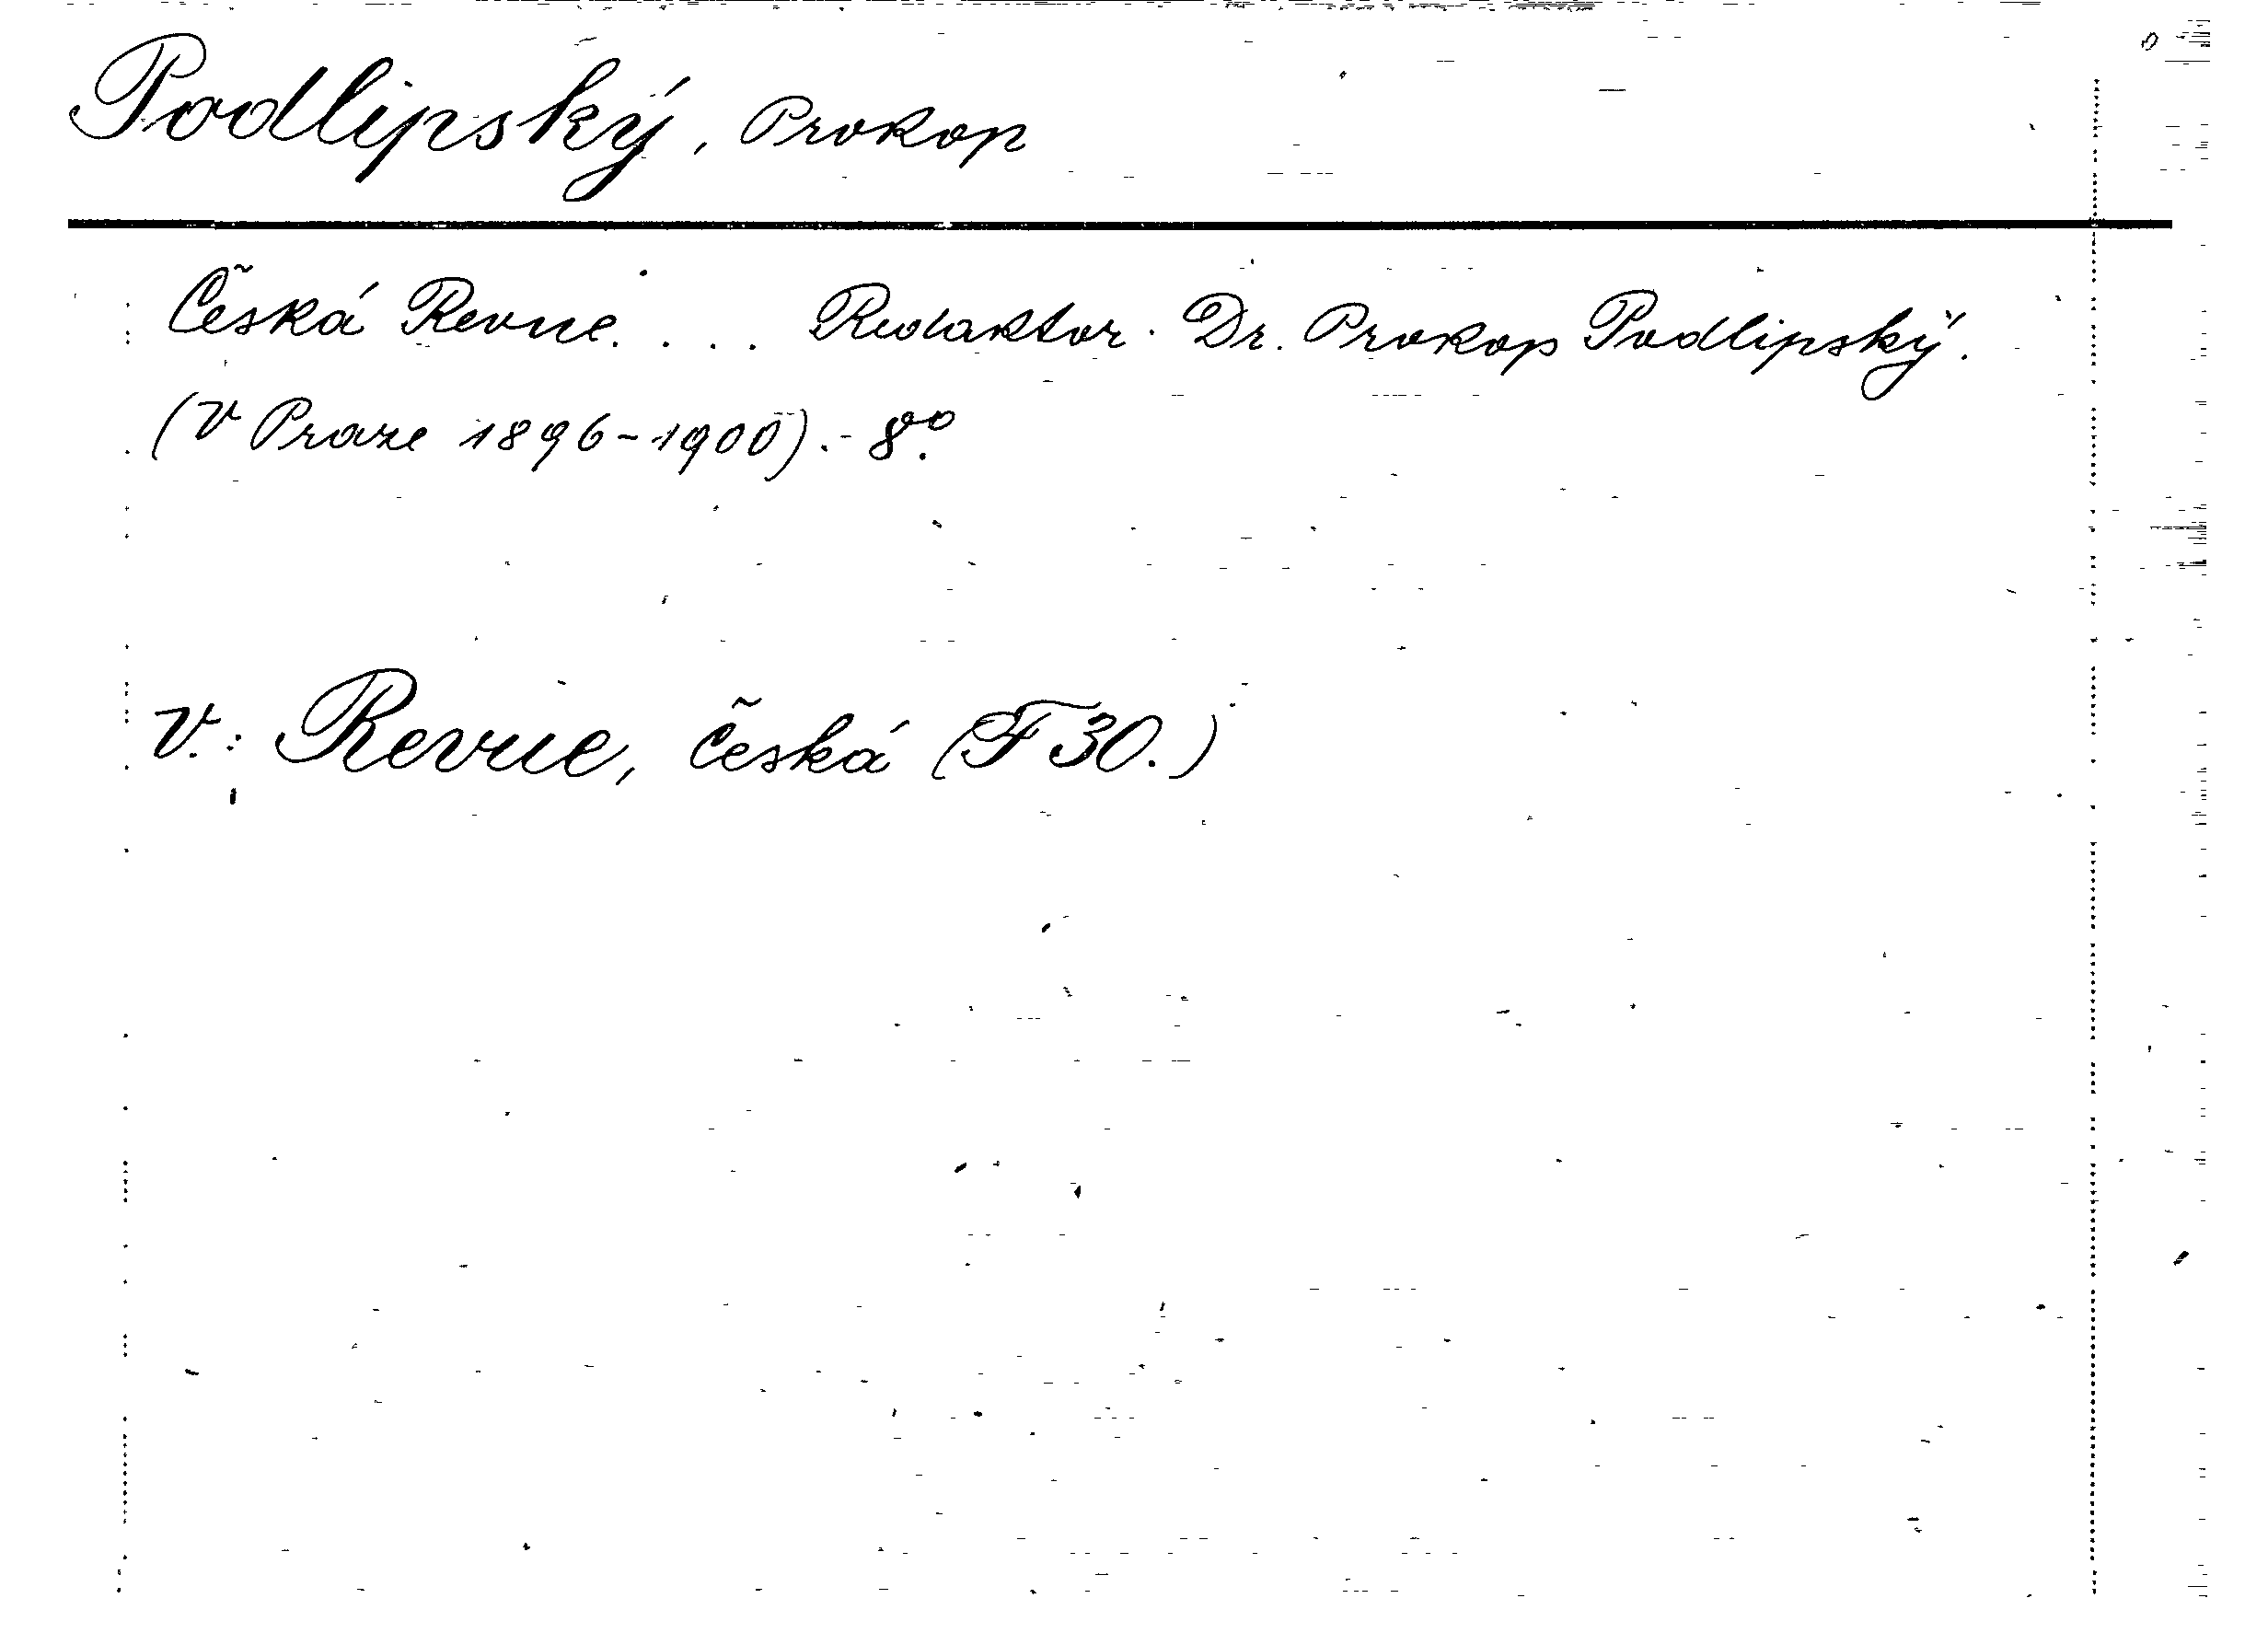 Podlipský, Prokop
Česká Revue. . . . Redaktor. Dr. Prokop Podlipský.
(V Praze 1896-1900).- 8º.
V.: Revue, česká (F 30.)